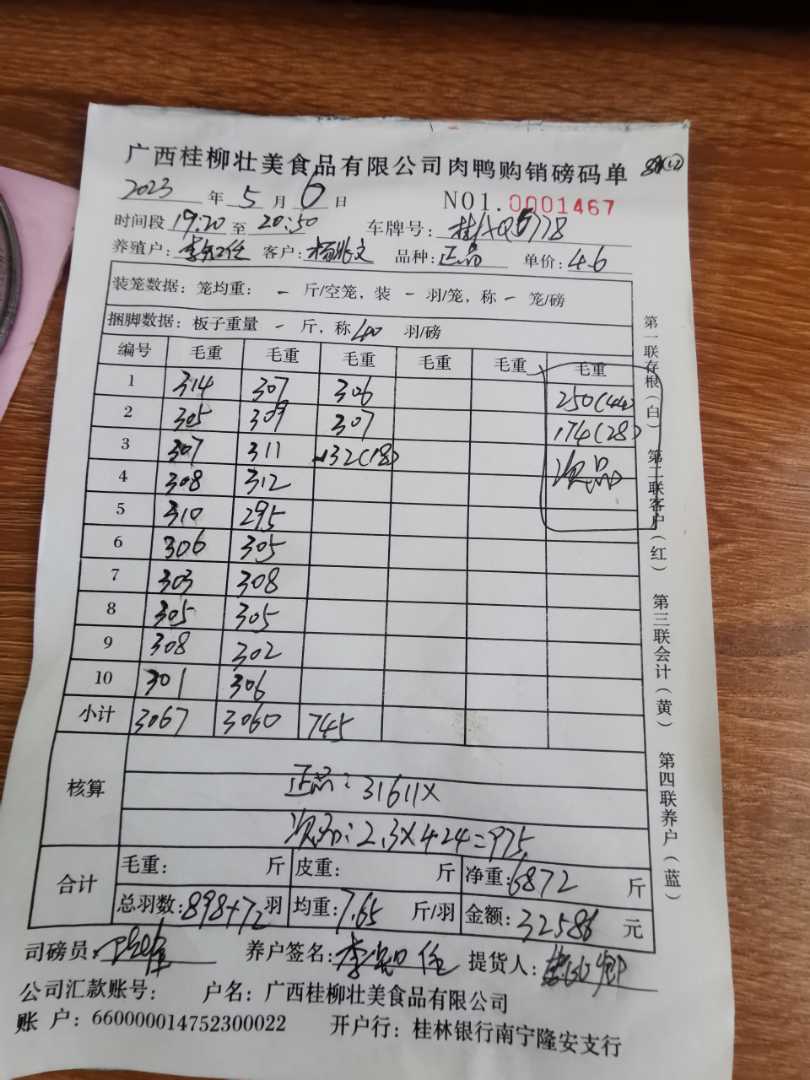 广西桂柳壮美食品有限公司肉鸭购销磅码单
2023 年 5 月 6 日 NO1.0001467
时间段 19:20 至 20:50 车牌号: 桂AQ6778
养殖户: 客户: 杨兆文 品种: 正品 单价: 4.6
装笼数据: 笼均重: - 斤/空笼, 装 - 羽/笼, 称 - 笼/磅
捆脚数据: 板子重量 - 斤, 称 40 羽/磅
编号 毛重 毛重 毛重 毛重 毛重 毛重
1 314 307 306 250(44)
2 305 309 307 174(28)
3 307 311 132(18) 次品
4 308 312
5 310 295
6 306 305
7 303 308
8 305 305
9 308 302
10 301 306
小计 3067 3060 745
核算
正品: 31611X
次品: 2.3X424=975
合计
毛重: 斤 皮重: 斤 净重: 6872 斤
总羽数: 898+72 羽 均重: 7.65 斤/羽 金额: 32586 元
司磅员: 养户签名: 提货人:
公司汇款账号: 户名: 广西桂柳壮美食品有限公司
账 户: 660000014752300022 开户行: 桂林银行南宁隆安支行
第一联存根(白) 第二联客户(红) 第三联会计(黄) 第四联养户(蓝)